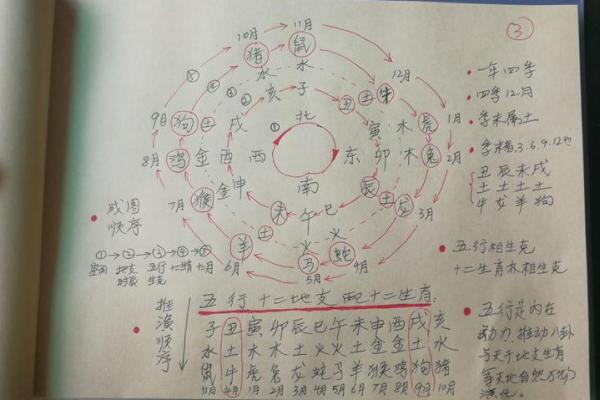 ③
10月 11月
猪 鼠
水 水
12月
亥 子
丑 土 牛
9月 狗 土 戌
北
寅 木 虎 1月
①
8月 鸡 金 酉 西
东 卯 木 兔 2月
南
7月 猴 金 申
辰 土 龙 3月
未 午 巳
土 火 火
羊 马 蛇
6月 5月 4月
一年四季
四季12月
季末属土
季末指3.6.9.12也
丑 辰 未 戌
土 土 土 土
牛 龙 羊 狗
五行相生克
十二生肖亦相生克
成图
顺序
①→②→③→④→⑤
空间 地支 五行 十二肖 十二月
时辰 生克
推演顺序
五行十二地支配十二生肖:
子 丑 寅 卯 辰 巳 午 未 申 酉 戌 亥
水 土 木 木 土 火 火 土 金 金 土 水
鼠 牛 虎 兔 龙 蛇 马 羊 猴 鸡 狗 猪
11月 12月 1月 2月 3月 4月 5月 6月 7月 8月 9月 10月
五行是内在
动力,推动八卦
与天干地支生肖
等天地自然万物
演化。